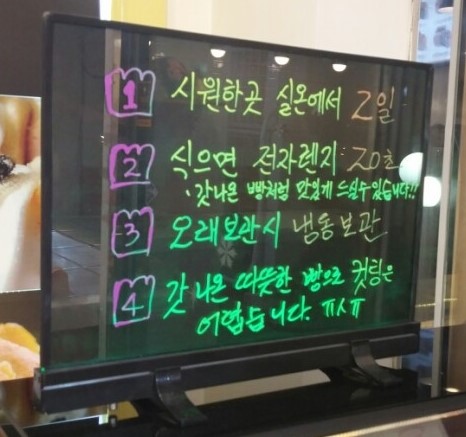 1 시원한곳 실온에서 2일
2 식으면 전자렌지 20초
·갓나온 빵처럼 맛있게 드실수있습니다!!
3 오래보관시 냉동보관
4 갓 나온 따뜻한 빵으로 컷팅은
어렵습니다. ㅠㅅㅠ